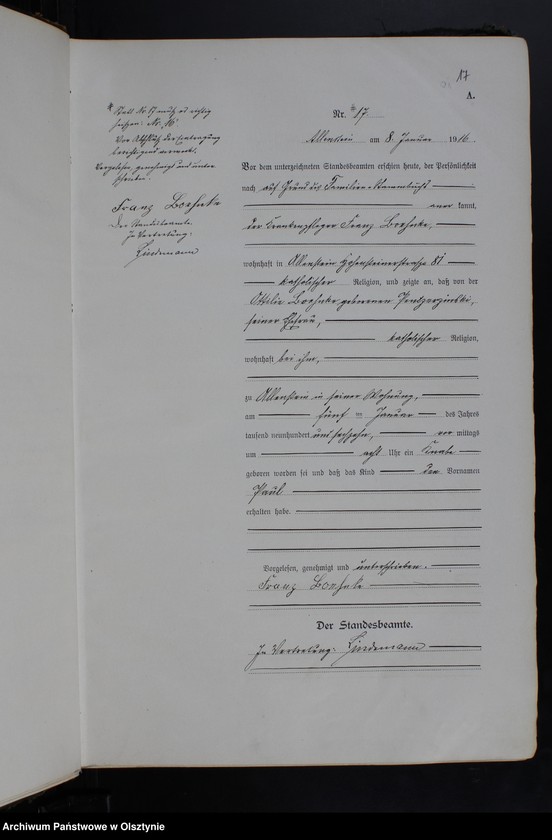 17
A.
* Statt Nr. 17 muß es richtig
heißen: Nr. "16"
Vor Abschluß der Eintragung
berichtigend vermerkt.
Vorgelesen, genehmigt und unter-
schrieben.
Franz Boehnke
Der Standesbeamte.
In Vertretung:
Lindemann
Nr. * 17.
Allenstein am 8. Januar 1916.
Vor dem unterzeichneten Standesbeamten erschien heute, der Persönlichkeit
nach auf Grund des Familien-Stammbuchs
aner kannt,
der Krankenpfleger Franz Boehnke,
wohnhaft in Allenstein Hohensteinerstraße 81
katholischer Religion, und zeigte an, daß von der
Ottilie Boehnke geborenen
seiner Ehefrau,
katholischer Religion,
wohnhaft bei ihm,
zu Allenstein in seiner Wohnung,
am fünf ten Januar des Jahres
tausend neunhundert und sechzehn, vor mittags
um acht Uhr ein Knabe
geboren worden sei und daß das Kind den Vornamen
Paul
erhalten habe.
Vorgelesen, genehmigt und unterschrieben.
Franz Boehnke
Der Standesbeamte.
In Vertretung: Lindemann
Archiwum Państwowe w Olsztynie